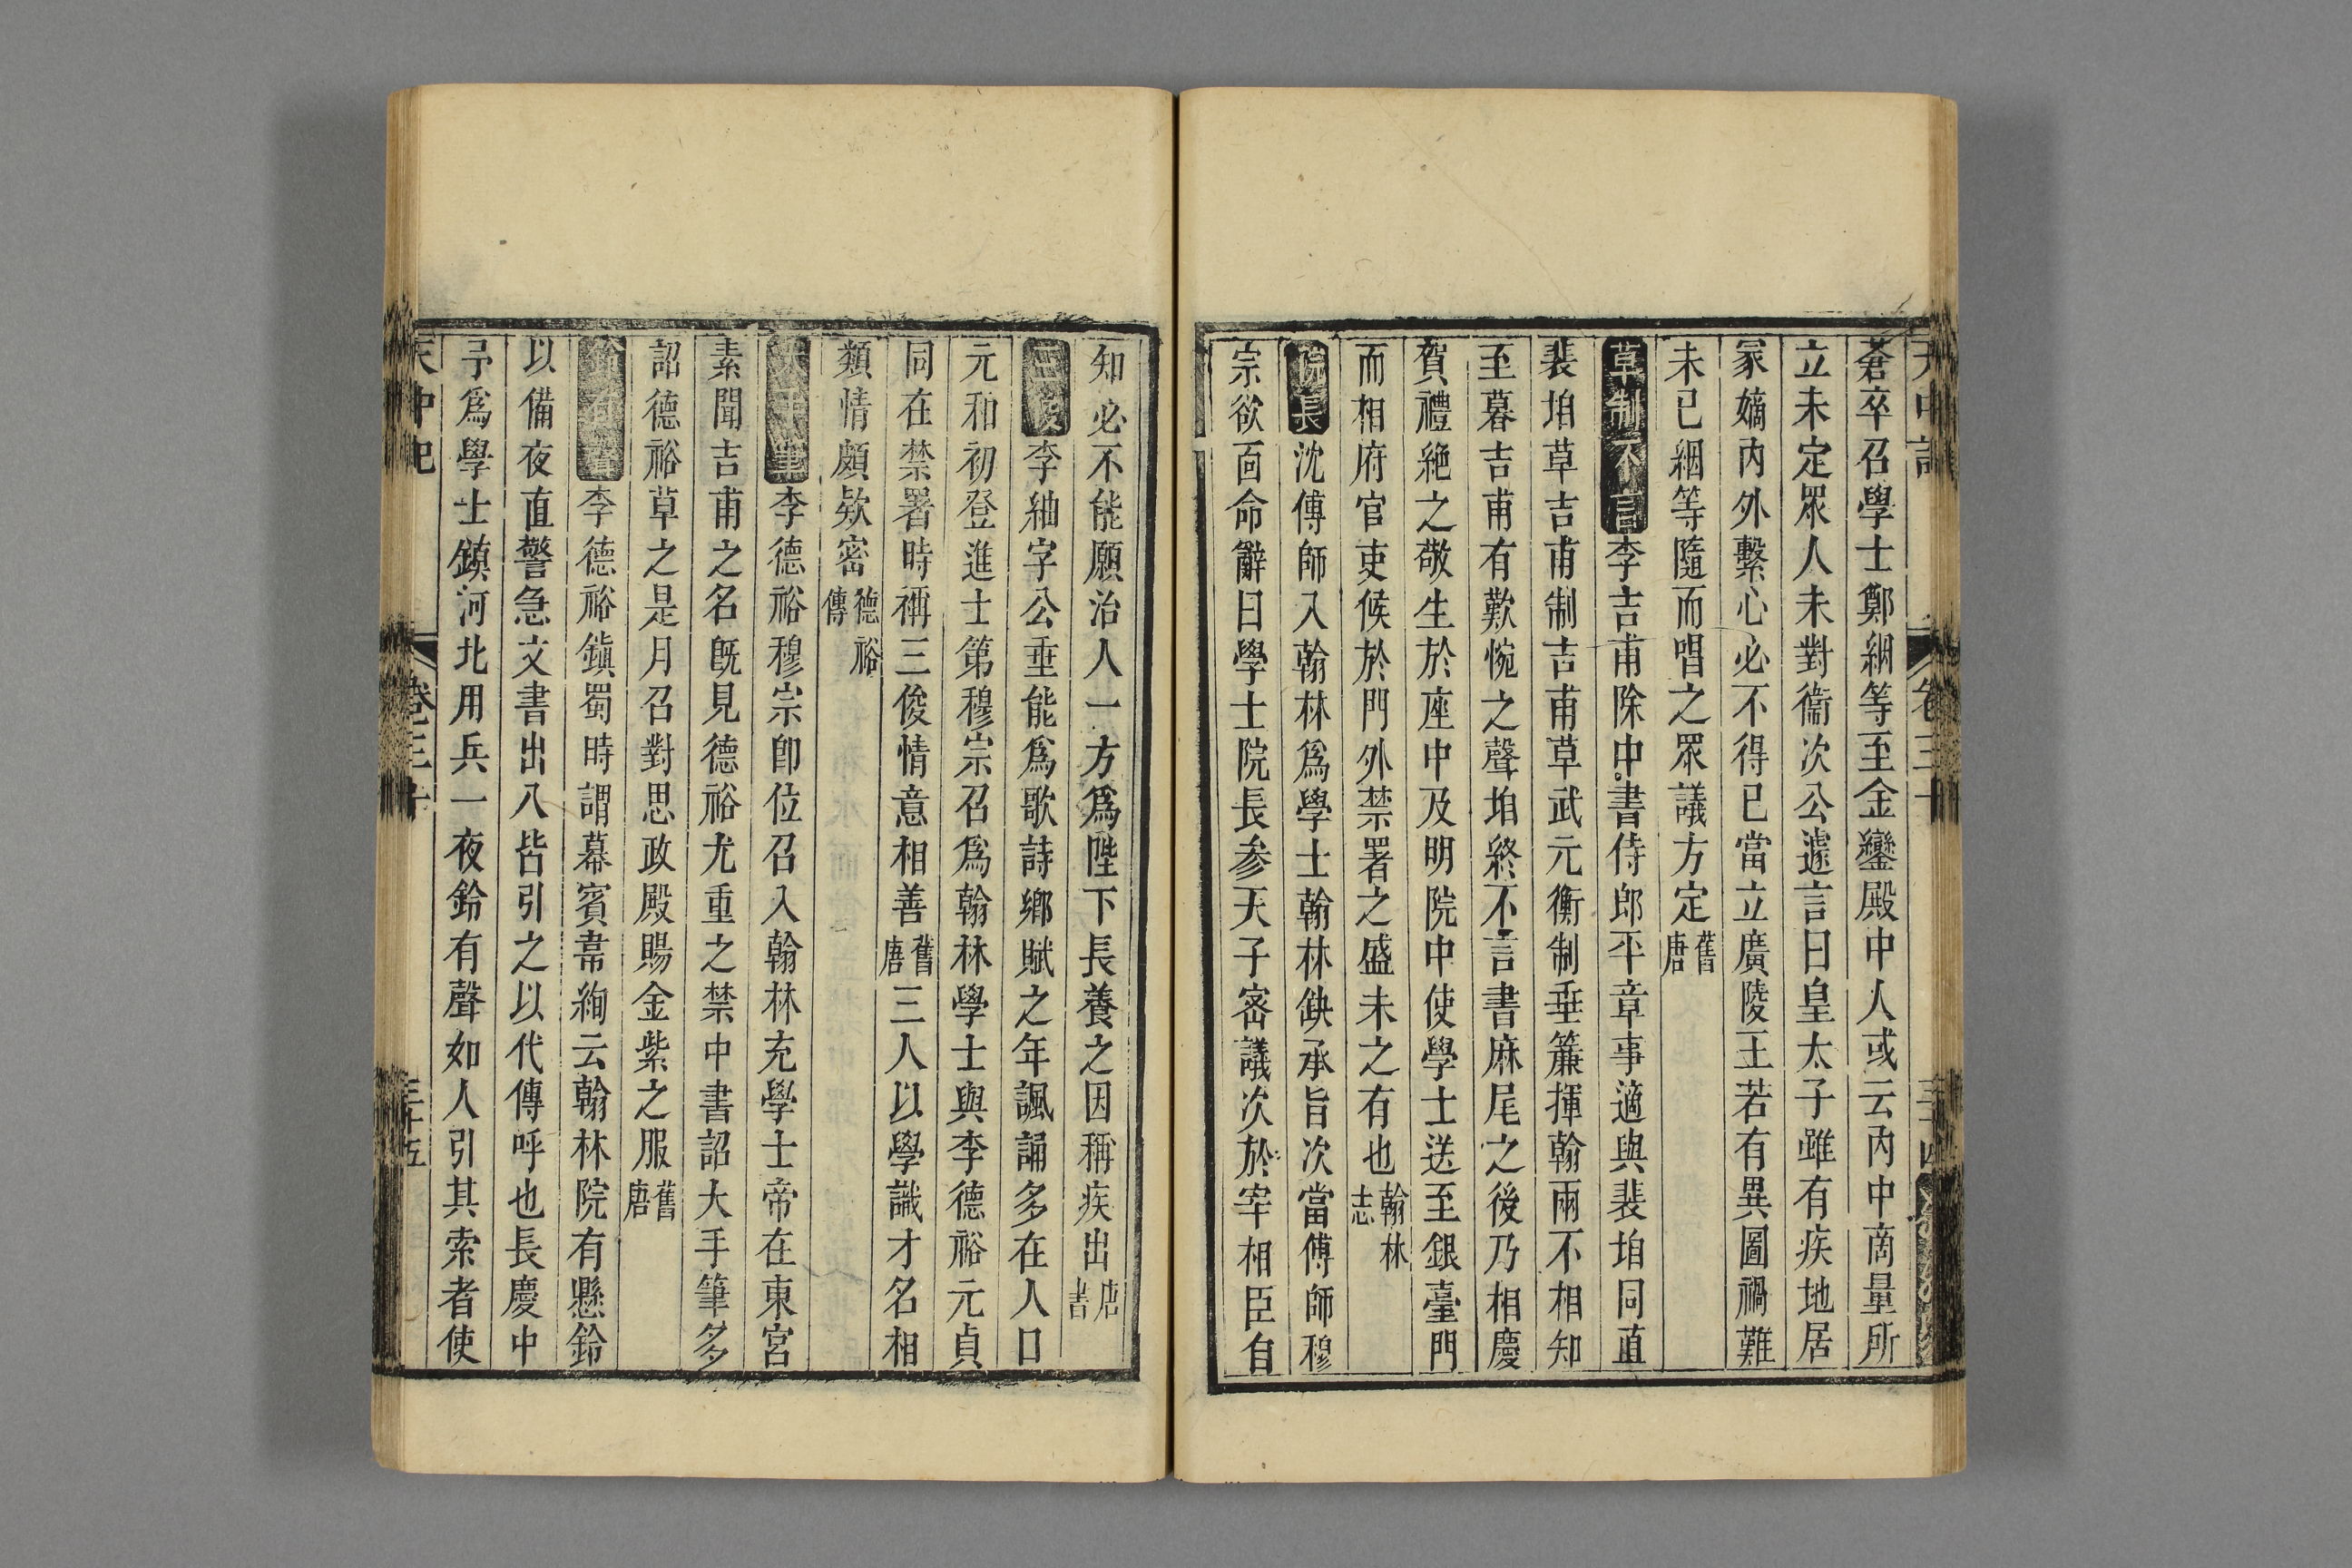 蒼卒召學士鄭絪等至金鑾殿中人或云內中商量所
立未定眾人未對衞次公遽言曰皇太子雖有疾地居
冢嫡內外繫心必不得已當立廣陵王若有異圖禍難
未已絪等隨而唱之眾議方定舊唐
草制不言李吉甫除中書侍郎平章事適與裴垍同直
裴垍草吉甫制吉甫草武元衡制垂簾揮翰兩不相知
至暮吉甫有歎惋之聲垍終不言書麻尾之後乃相慶
賀禮絶之敬生於座中及明院中使學士送至銀臺門
而相府官吏候於門外禁署之盛未之有也翰林志
院長沈傳師入翰林爲學士翰林缺承旨次當傅師穆
宗欲面命辭曰學士院長參天子密議次於宰相臣自
天中記 卷三十 三十四
知必不能願治人一方爲陛下長養之因稱疾出唐書
三俊李紳字公垂能爲歌詩鄉賦之年諷誦多在人口
元和初登進士第穆宗召爲翰林學士與李德裕元貞
同在禁署時稱三俊情意相善舊唐三人以學識才名相
類情頗欵密德裕傳
大手筆李德裕穆宗卽位召入翰林充學士帝在東宮
素聞吉甫之名旣見德裕尤重之禁中書詔大手筆多
詔德裕草之是月召對思政殿賜金紫之服舊唐
李德裕鎭蜀時謂幕賓韋絢云翰林院有懸鈴
以備夜直警急文書出入皆引之以代傳呼也長慶中
予爲學士鎮河北用兵一夜鈴有聲如人引其索者使
天中記 卷三十 三十五